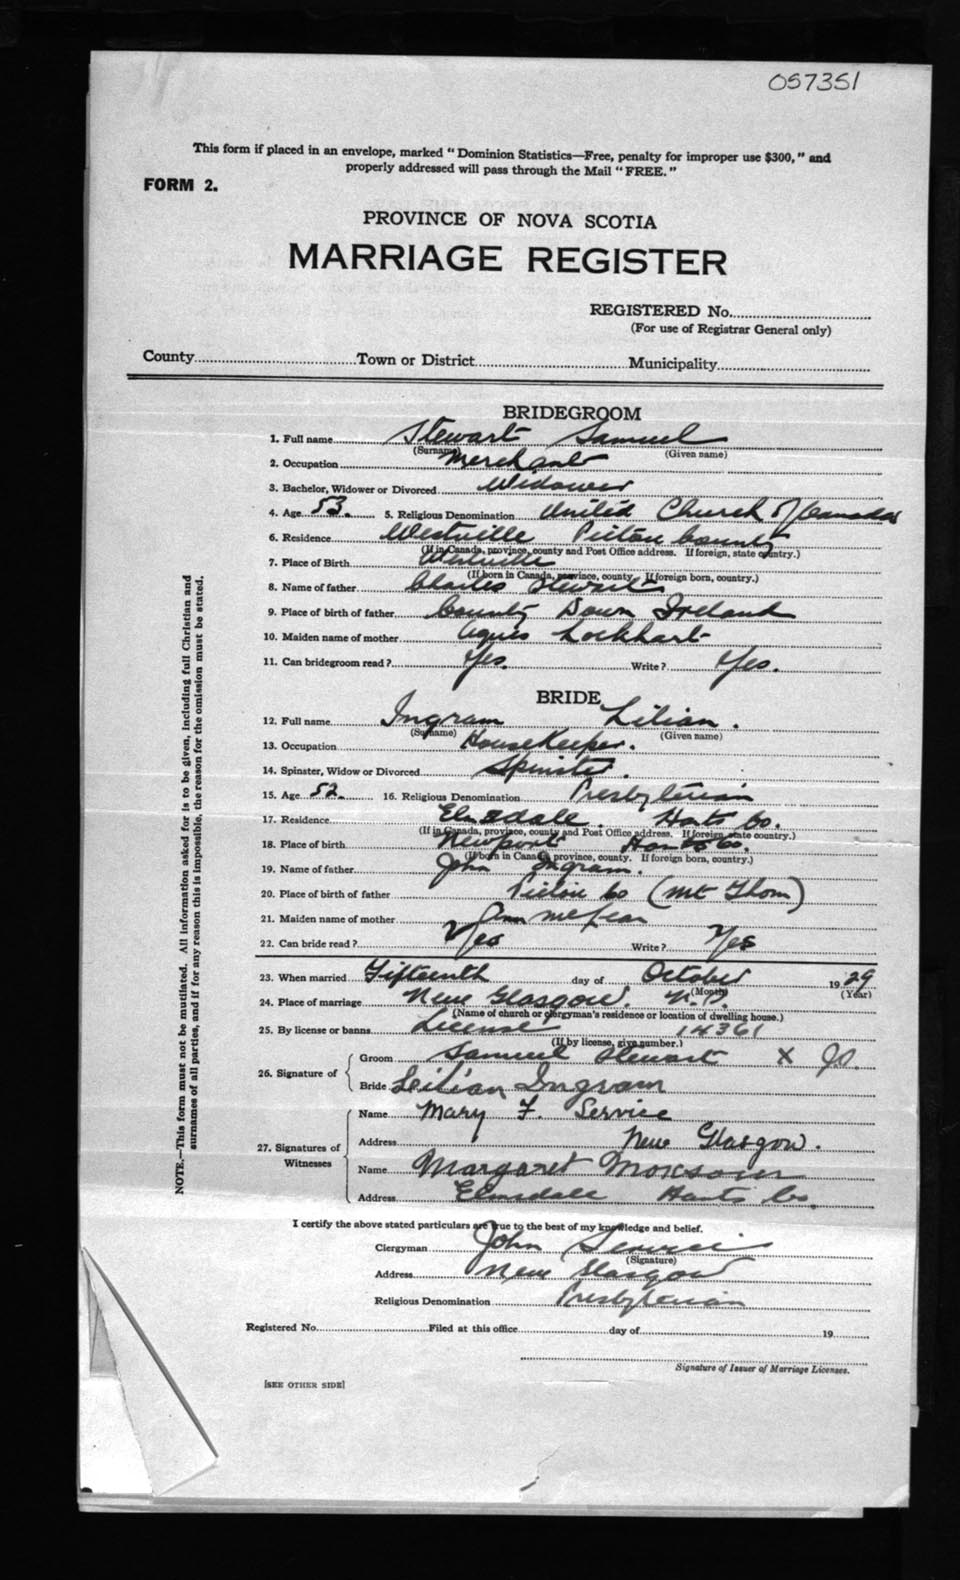 057351
This form if placed in an envelope, marked "Dominion Statistics—Free, penalty for improper use $300," and
properly addressed will pass through the Mail "FREE."
FORM 2.
PROVINCE OF NOVA SCOTIA
MARRIAGE REGISTER
REGISTERED No.
(For use of Registrar General only)
County Town or District Municipality
BRIDEGROOM
1. Full name Stewart Samuel
(Surname) (Given name)
2. Occupation Merchant
3. Bachelor, Widower or Divorced Widower
4. Age 53. 5. Religious Denomination United Church of Canada
6. Residence Westville Pictou County
(If in Canada, province, county and Post Office address. If foreign, state country.)
7. Place of Birth Westville
(If born in Canada, province, county. If foreign born, country.)
8. Name of father Charles Stewart
9. Place of birth of father County Down Ireland
10. Maiden name of mother Agnes Lockhart
11. Can bridegroom read? Yes. Write? Yes.
BRIDE
12. Full name Ingram Lilian.
(Surname) (Given name)
13. Occupation HouseKeeper.
14. Spinster, Widow or Divorced Spinster.
15. Age 52. 16. Religious Denomination Presbyterian
17. Residence Elmsdale. Hants Co.
(If in Canada, province, county and Post Office address. If foreign, state country.)
18. Place of birth Newport Hants Co.
(If born in Canada, province, county. If foreign born, country.)
19. Name of father John Ingram.
20. Place of birth of father Pictou Co (Mt Thom)
21. Maiden name of mother Ann McLean
22. Can bride read? Yes Write? Yes
23. When married Fifteenth day of October 1929
(Month) (Year)
24. Place of marriage New Glasgow. N.S.
(Name of church or clergyman's residence or location of dwelling house.)
25. By license or banns License 14361
(If by license, give number.)
26. Signature of Groom Samuel Stewart X J.S.
Bride Leilian Ingram
27. Signatures of Witnesses Name Mary F. Service
Address New Glasgow.
Name Margaret
Address Elmsdale Hants Co.
I certify the above stated particulars are true to the best of my knowledge and belief.
Clergyman John Service
(Signature)
Address New Glasgow
Religious Denomination Presbyterian
Registered No. Filed at this office day of 19
Signature of Issuer of Marriage Licenses.
[SEE OTHER SIDE]
NOTE.—This form must not be mutilated. All information asked for is to be given, including full Christian and
surnames of all parties, and if for any reason this is impossible, the reason for the omission must be stated.